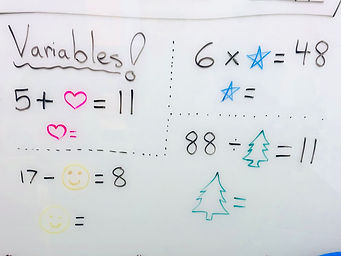 Variables!
5 + ♡ = 11
♡ =
6 × ☆ = 48
☆ =
17 - ☺ = 8
☺ =
88 ÷ 🌲 = 11
🌲 =